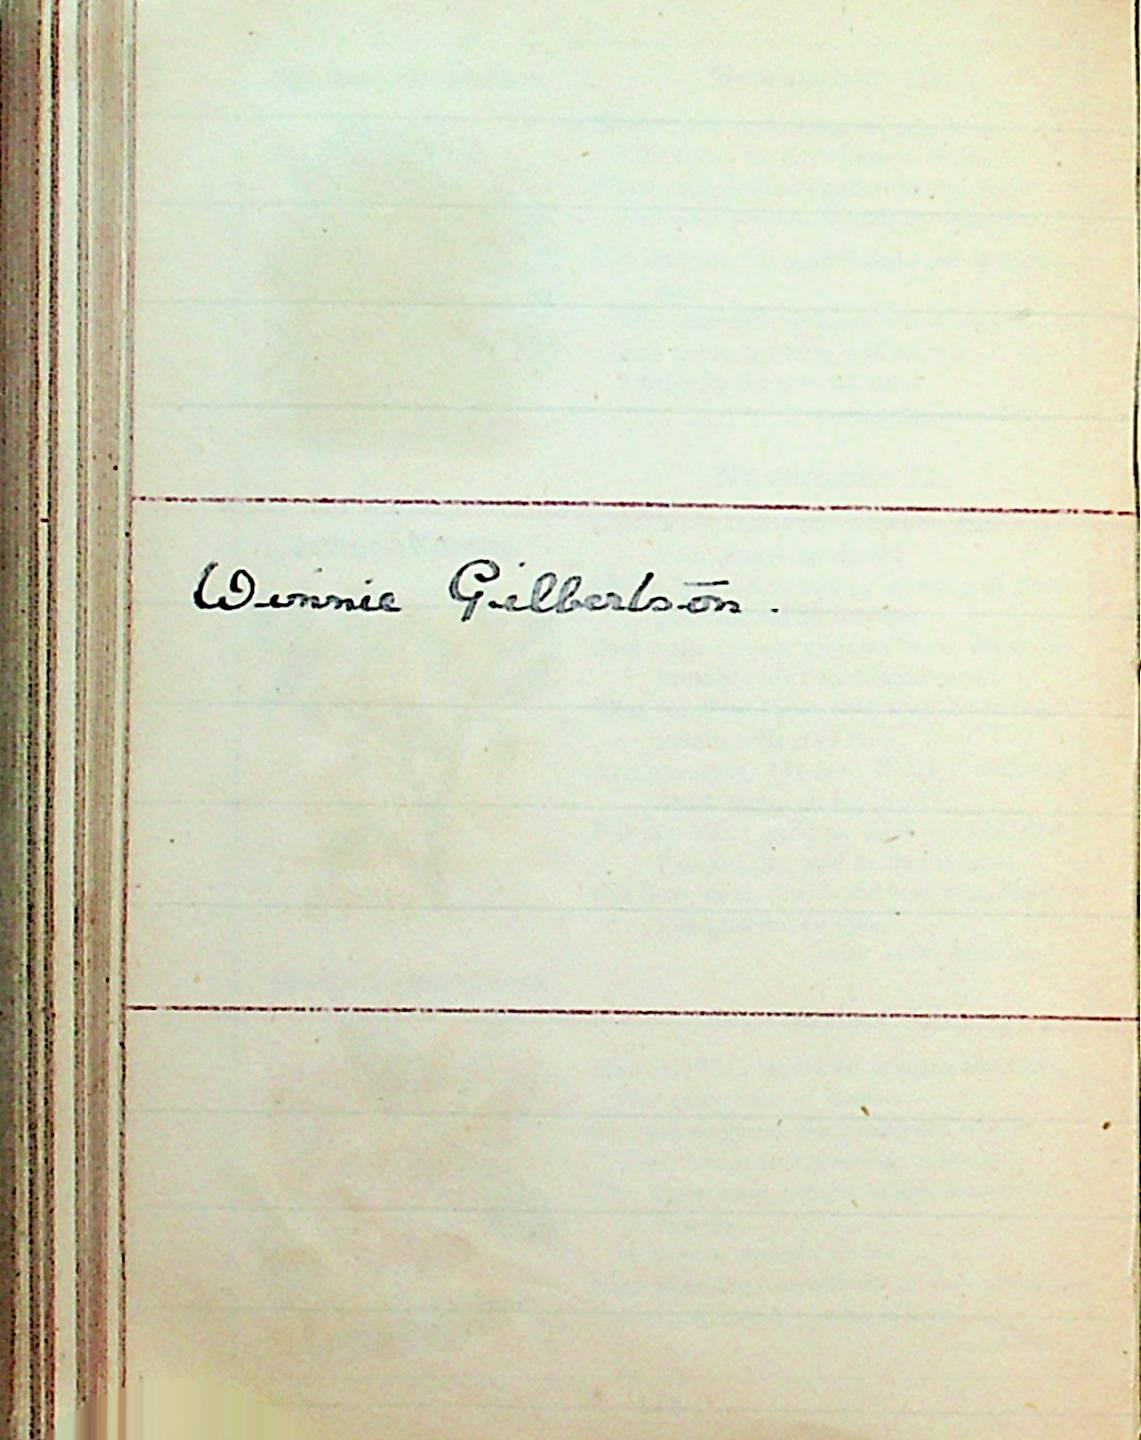 Winnie Gilbertson.